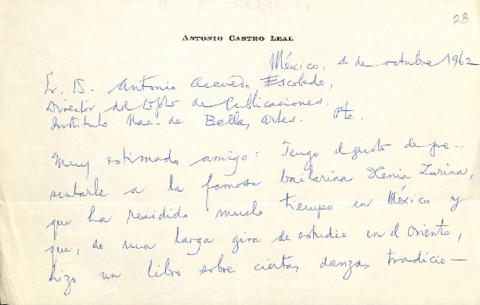 28
ANTONIO CASTRO LEAL
México, 1 de octubre 1962
Sr. D. Antonio Acevedo Escobedo,
Director del Dpto de Publicaciones.
Instituto Nac. de Bellas Artes. Pte.
Muy estimado amigo: Tengo el gusto de pre-
sentarle a la famosa bailarina Xenia Zarina,
que ha residido mucho tiempo en México y
que, de una larga gira de estudio en el Oriente,
hizo un libro sobre ciertas danzas tradicio-